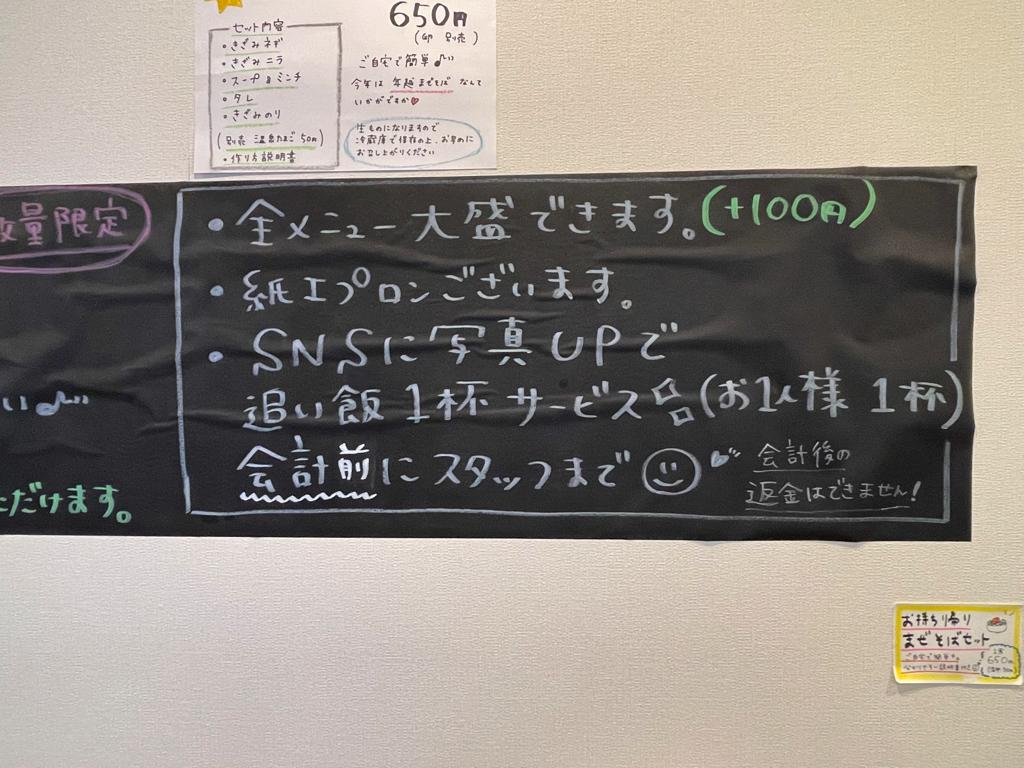 650円
(卵 別売)
セット内容
・きざみネギ
・きざみニラ
・スープ&ミンチ
・タレ
・きざみのり
(別売 温泉たまご 50円)
・作り方説明書
ご自宅で簡単♪
今年は 年越まぜそば なんて
いかがですか♡
生ものになりますので
冷蔵庫で保存の上、お早めに
お召し上がりください
数量限定
い♪
ただけます。
・全メニュー大盛できます。(+100円)
・紙エプロンございます。
・SNSに写真UPで
追い飯1杯サービス(お1人様1杯)
会計前にスタッフまで
会計後の
返金はできません!
お持ち帰り
まぜそばセット
ご自宅で簡単に
1食
650円